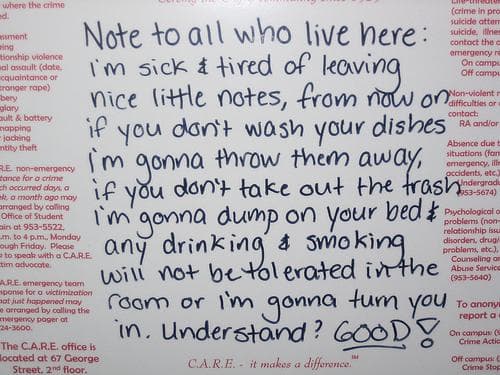 Serving the City & Community since 1991
where the crime
ed.
Note to all who live here:
i'm sick & tired of leaving
nice little notes, from now on
if you don't wash your dishes
i'm gonna throw them away,
if you don't take out the trash
i'm gonna dump on your bed &
any drinking & smoking
will not be tolerated in the
room or i'm gonna turn you
in. Understand? GOOD!
ssment
ring
tionship violence
al assault (date,
cquaintance or
tranger rape)
bery
glary
ault & battery
napping
jacking
ntity theft
R.E. non-emergency
tance for a crime
ch occurred days, a
k, a month ago may
arranged by calling
Office of Student
ain at 953-5522,
.m. to 4 p.m., Monday
ough Friday. Please
to speak with a C.A.R.E.
tim advocate.
A.R.E. emergency team
sponse for a victimization
at just happened may
e arranged by calling the
mergency pager at
24-3600.
The C.A.R.E. office is
located at 67 George
Street, 2nd floor.
C.A.R.E. - it makes a difference.℠
Life-threaten
(crime in pro
suicide attem
suicide, illnes
contact the c
emergency re
On campu
Off campu
Non-violent r
difficulties or
contact:
RA and/or
Absence due t
situations (fam
emergency, illn
accidents, etc.)
Undergradu
(953-5674)
Psychological o
problems (non-
relationship issu
disorders, drug/
problems, etc.),
Counseling an
Abuse Service
(953-5640)
To anonym
report a
On campus: (
Crime Actio
Off campus: (
Crime Stop